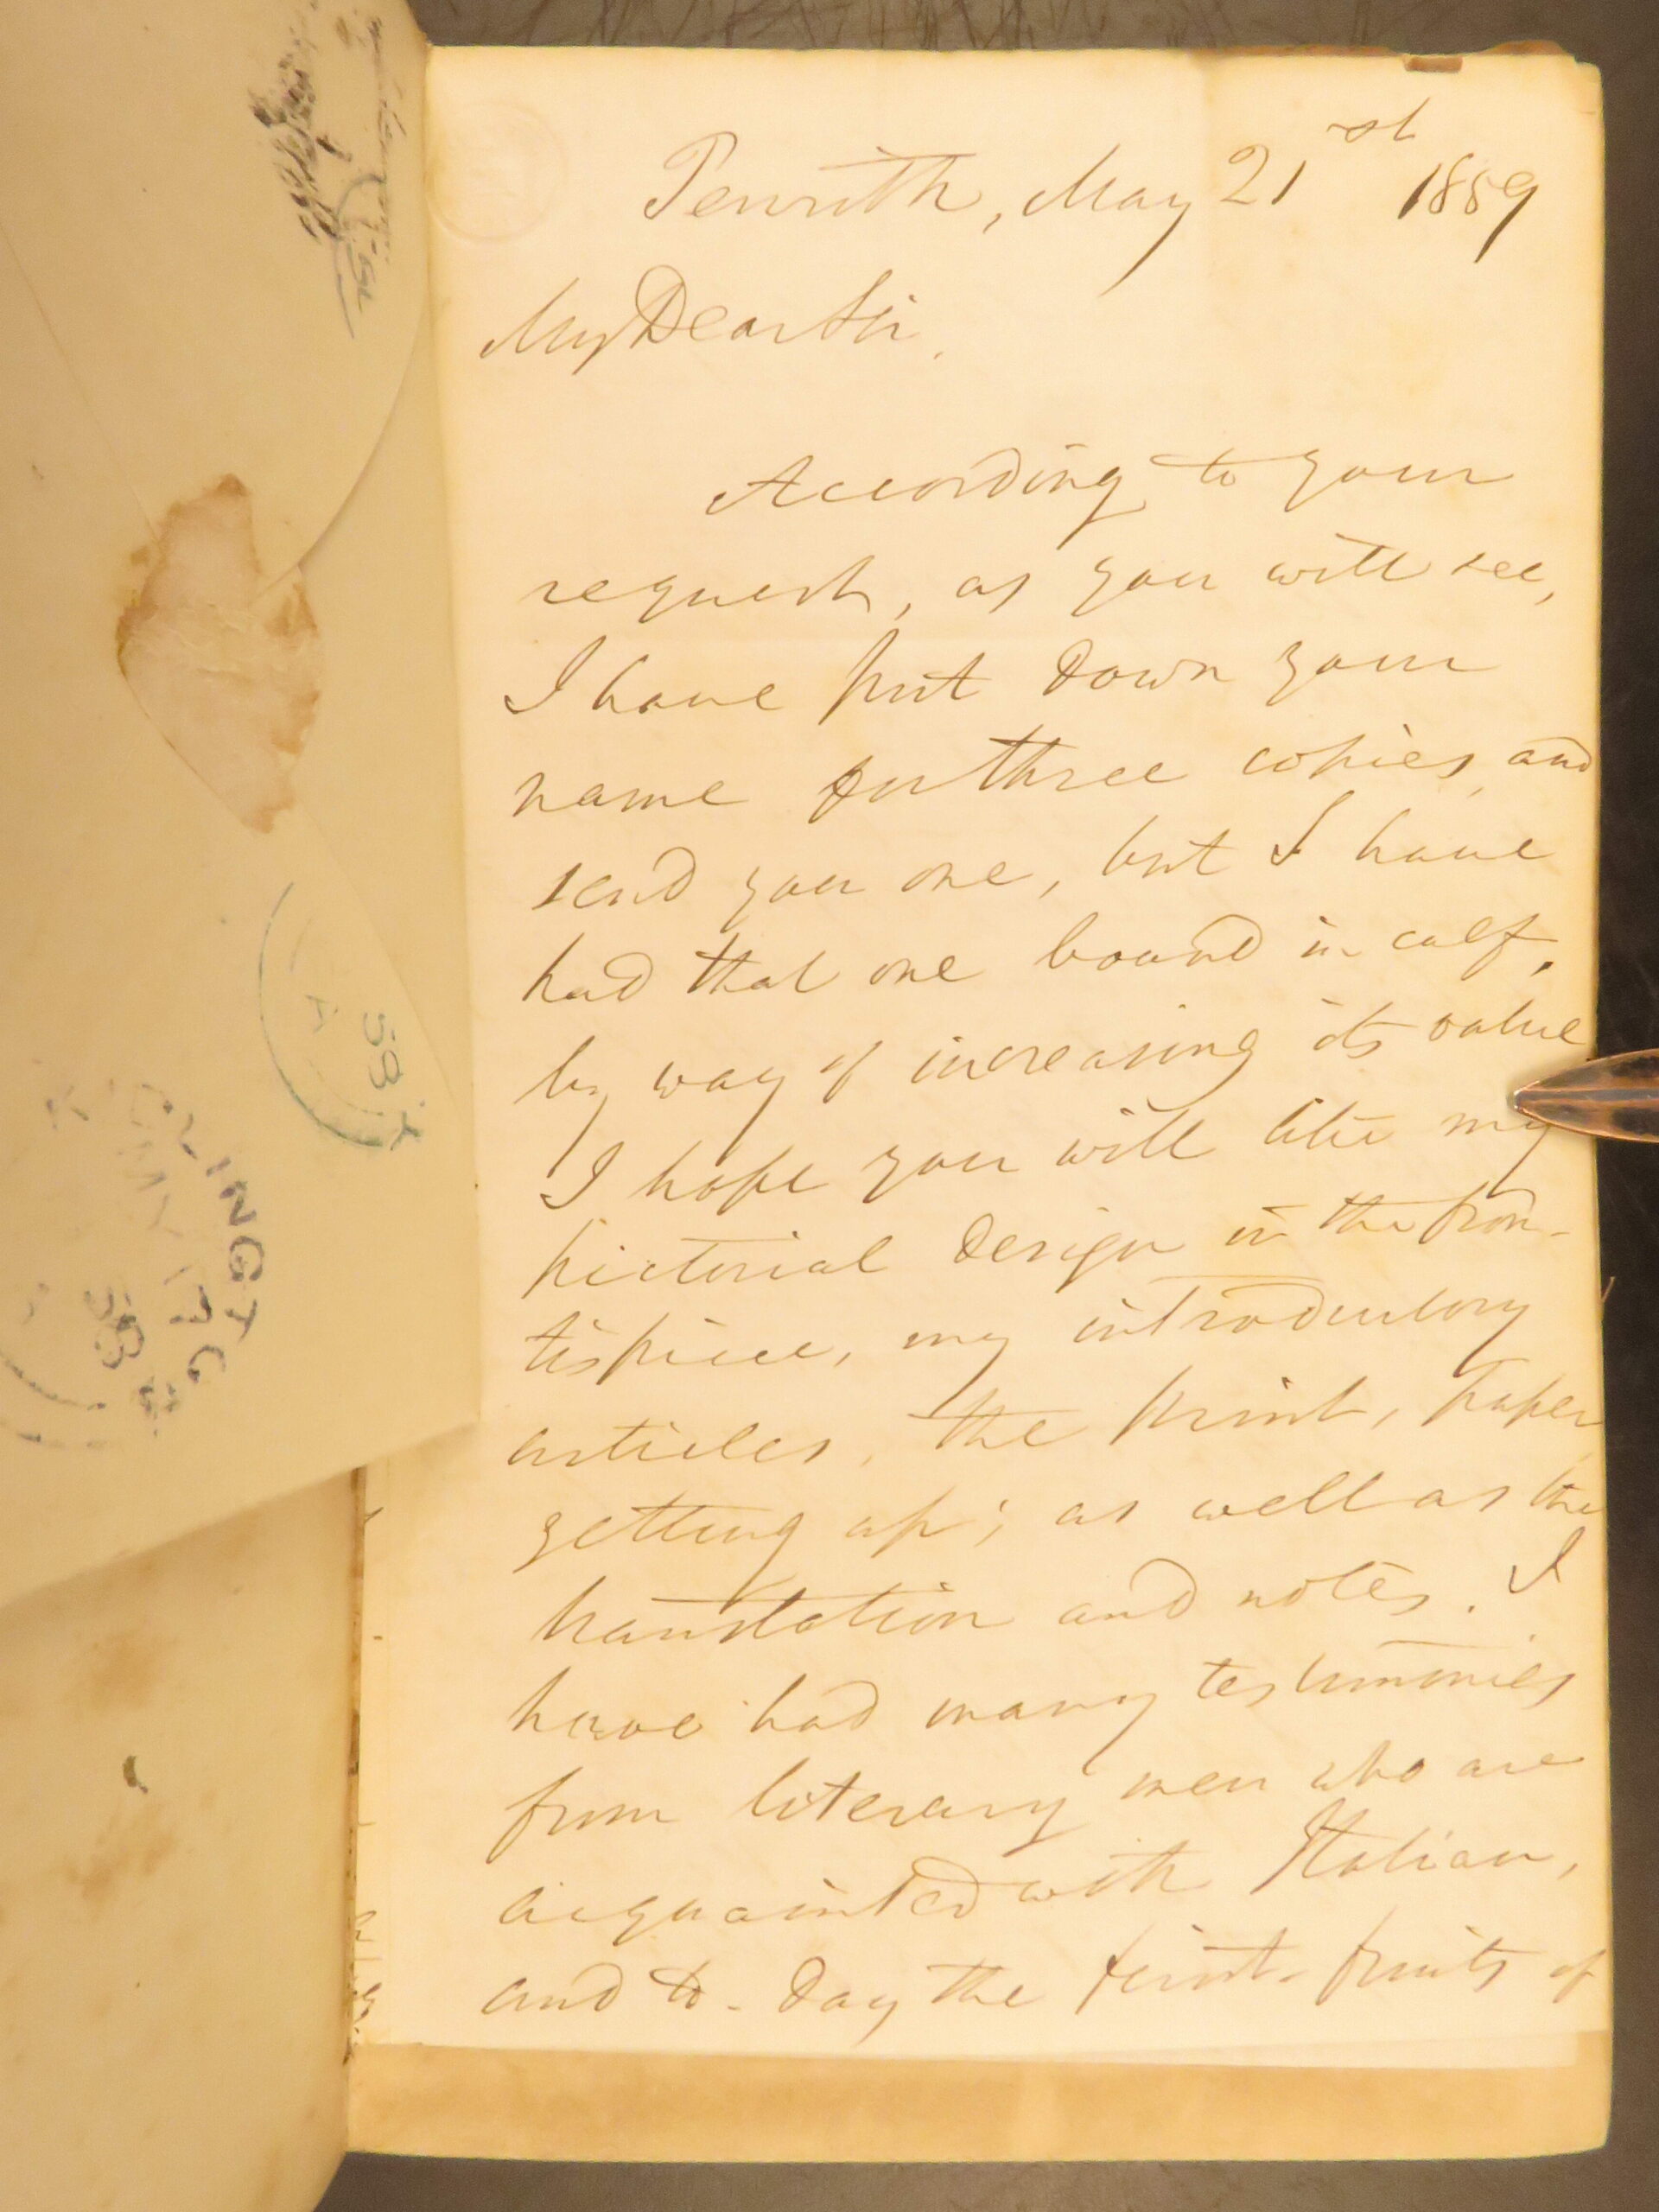 Penrith, May 21st 1859
My Dear Sir,
According to your
request, as you will see,
I have put down your
name for three copies, and
send you one, but I have
had that one bound in calf,
by way of increasing its value
I hope you will like my
pictorial design in the fron-
tispiece, my introductory
articles, the print, paper
getting up; as well as the
translation and notes. I
have had many testimonies
from literary men who are
acquainted with Italian,
and to-day the first-fruits of
59
A
LINGT